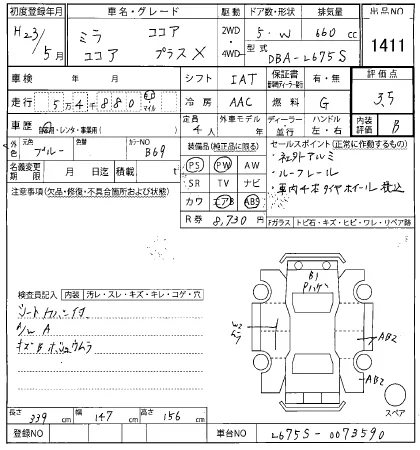 初度登録年月 車名・グレード 駆動 ドア数・形状 排気量 出品NO
H23/5月 ミラココア ココアプラスX 2WD・4WD 5・W 660cc 1411
型式 DBA-L675S
車検 年 月 シフト IAT 保証書 有・無 評価点
走行 5万4千880 キロ・マイル 冷房 AAC 燃料 G 3.5
車歴 自家用・レンタ・事業用( ) 定員 4人 外車モデル 年 ディーラー・並行 ハンドル 左・右 内装評価 B
外色 元色 ブルー 色替 カラーNO B69
名義変更期限 月 日迄 積載 kg
装備品(純正品に限る)
PS PW AW
SR TV ナビ
カワ エアB ABS
R券 8,730円
セールスポイント(正常に作動するもの)
・社外アルミ
・ルーフレール
・車内4本タイヤホイール積込
注意事項(欠品・修復・不具合箇所および状態)
Fガラス トビ石・キズ・ヒビ・ワレ・リペア跡
検査員記入 内装 汚レ・スレ・キズ・キレ・コゲ・穴
B1
W2
AB2
AB2
スペア
長さ 339cm 幅 147cm 高さ 156cm
登録NO 車台NO L675S-0073590